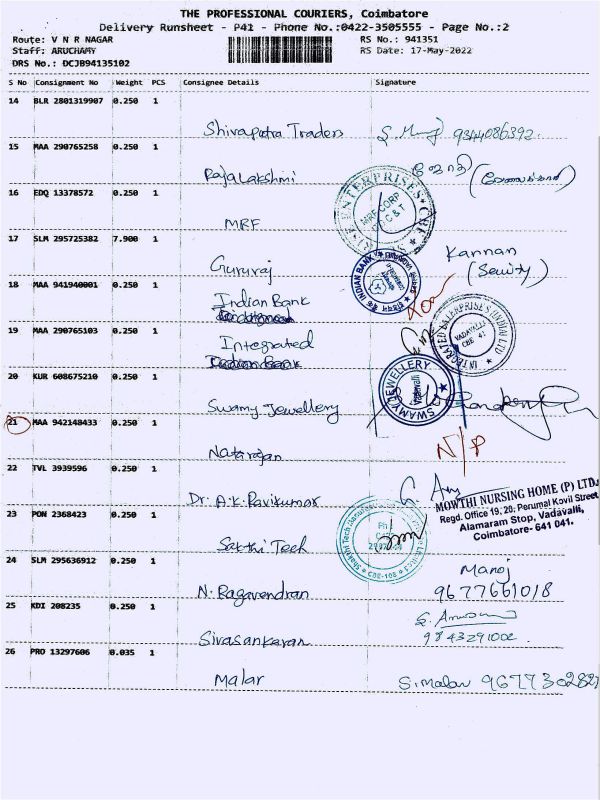 THE PROFESSIONAL COURIERS, Coimbatore
Delivery Runsheet - P41 - Phone No.:0422-3505555 - Page No.:2
Route: V N R NAGAR RS No.: 941351
Staff: ARUCHAMY RS Date: 17-May-2022
DRS No.: DCJB94135102
S No Consignment No Weight PCS Consignee Details Signature
14 BLR 2801319907 0.250 1
Shivaputra Traders 9344086392
15 MAA 290765258 0.250 1
Rajalakshmi
16 EDQ 13378572 0.250 1
MRF
17 SLM 295725382 7.900 1
Gururaj Kannan
18 MAA 941940001 0.250 1
Indian Bank
INDIAN BANK
19 MAA 290765103 0.250 1
Integrated
Indian Bank
INTEGRATED ENTERPRISES (INDIA) LTD
VADAVALLI
CBE 41
20 KUR 608675210 0.250 1
Swamy Jewellery
SWAMY JEWELLERY
Vadavalli
21 MAA 942148433 0.250 1
Natarajan N/P
22 TVL 3939596 0.250 1
Dr. A.K. Ravikumar
MOWTHI NURSING HOME (P) LTD.,
Regd. Office 19, 20, Perumal Kovil Street
Alamaram Stop, Vadavalli,
Coimbatore- 641 041.
23 PON 2368423 0.250 1
Sakthi Tech
24 SLM 295636912 0.250 1
N. Ragavendran Manoj
9677661018
25 KDI 208235 0.250 1
Sivasankaran
9843291002
26 PRO 13297606 0.035 1
Malar S. Malar